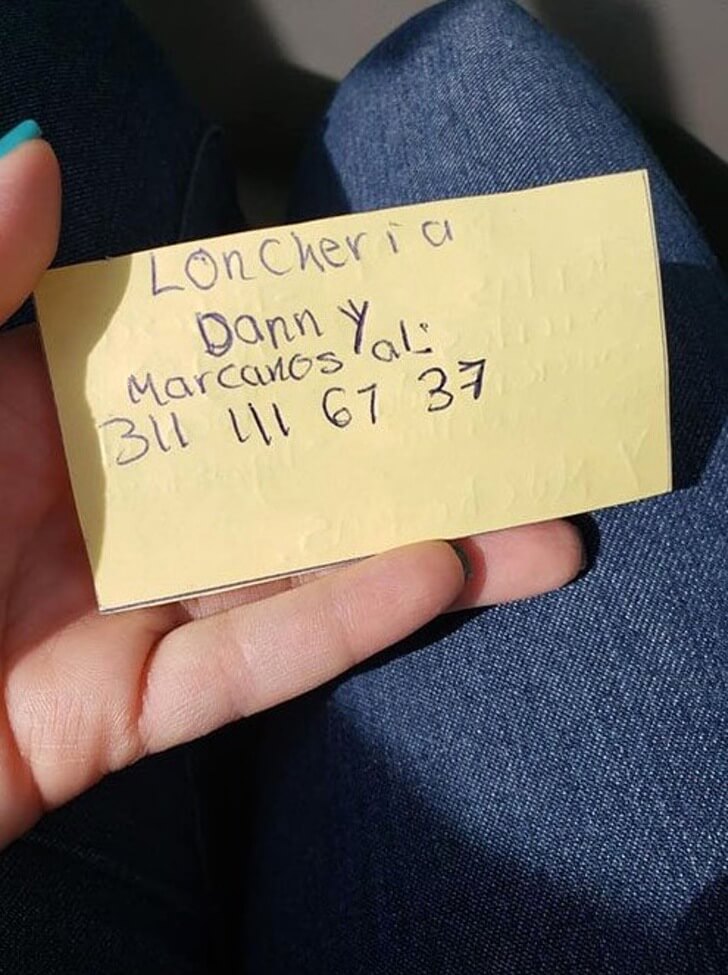 LOnCheria
DannY
Marcanos al:
311 111 67 37